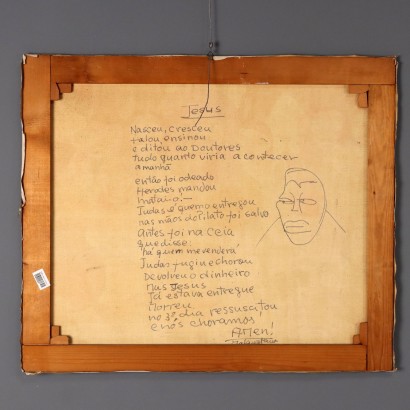 Jesus
Nasceu, cresceu
falou ensinou
e ditou ao Doutores
tudo quanto viria acontecer
amanhã
então foi odeado
Herodes mandou
matalio.—
Judas é quem o entregou
nas mãos de Pilato foi salvo
Antes foi na ceia
que disse:
há quem me venderá
Judas fugiu e chorou
Devolveu o dinheiro
mas Jesus
Já estava entregue
Morreu
no 3º dia ressucitou
e nós choramos
Amen!